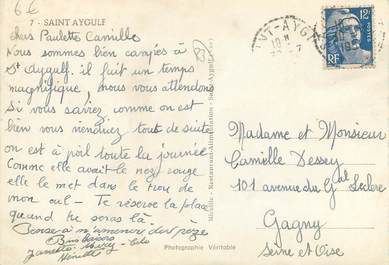 6€
7 - SAINT AYGULF
chers Paulette Camille
Nous sommes bien campés à
St Aygulf, il fait un temps
magnifique, nous vous attendons
Si vous saviez comme on est
bien vous viendriez tout de suite
on est à poil toute la journée
Comme elle avait le nez rouge
elle le met dans le trou de
mon cul - Te réserve la place
quand tu seras là.
Pense à m'amener des
Bons baisers
Photographie Véritable
12F
POSTES
RF
Madame et Monsieur
Camille Dessey
101 avenue du Gal Leclerc
Gagny
Seine et Oise